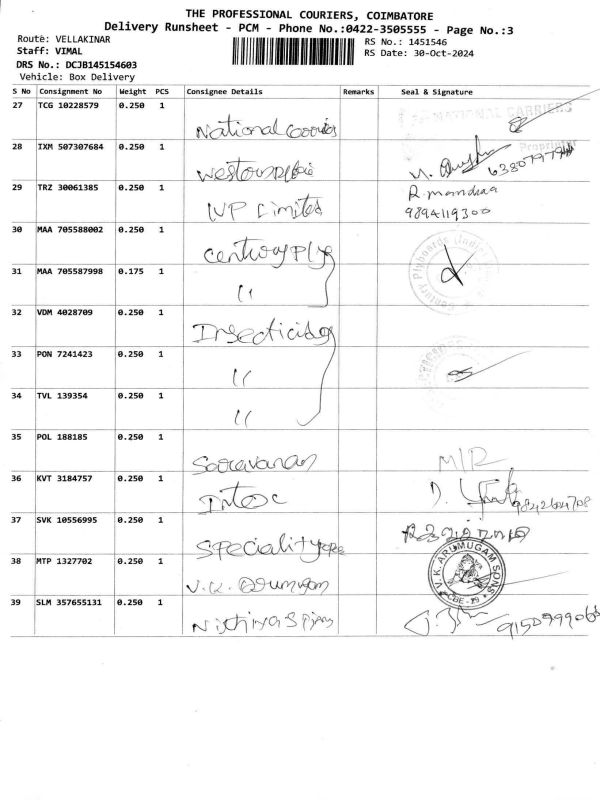 THE PROFESSIONAL COURIERS, COIMBATORE
Delivery Runsheet - PCM - Phone No.:0422-3505555 - Page No.:3
Route: VELLAKINAR
RS No.: 1451546
Staff: VIMAL
RS Date: 30-Oct-2024
DRS No.: DCJB145154603
Vehicle: Box Delivery
S No Consignment No Weight PCS Consignee Details Remarks Seal & Signature
27 TCG 10228579 0.250 1
National Carriers
NATIONAL CARRIERS
28 IXM 507307684 0.250 1
Proprietor
29 TRZ 30061385 0.250 1
IVP Limited
9894119300
30 MAA 705588002 0.250 1
Century Ply
Century Plyboards (India)
31 MAA 705587998 0.175 1
"
32 VDM 4028709 0.250 1
Insecticides
33 PON 7241423 0.250 1
"
34 TVL 139354 0.250 1
"
35 POL 188185 0.250 1
Saravanan
M/R
36 KVT 3184757 0.250 1
Intec
D.
37 SVK 10556995 0.250 1
Speciality
38 MTP 1327702 0.250 1
V.K. Arumugam
V.K. ARUMUGAM SONS
CBE-19
39 SLM 357655131 0.250 1